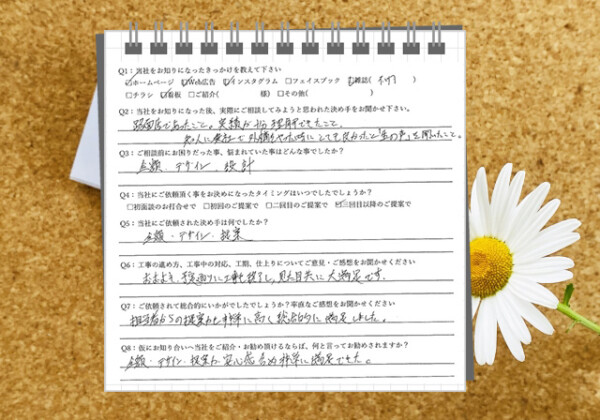 Q1：当社をお知りになったきっかけを教えて下さい
☑ホームページ ☑Web広告 ☑インスタグラム □フェイスブック ☑雑誌( )
□チラシ ☑看板 □ご紹介( 様) □その他( )
Q2：当社をお知りになった後、実際にご相談してみようと思われた決め手をお聞かせ下さい。
路面店であったこと。実績が 理解できたこと。
知人に 外構をやった時にとても良かったと"生の声"を聞いたこと。
Q3：ご相談前にお困りだった事、悩まれていた事はどんな事でしたか？
金額、デザイン、設計
Q4：当社にご依頼頂く事をお決めになったタイミングはいつでしたでしょうか？
□初面談のお打合せで □初回のご提案で □二回目のご提案で ☑三回目以降のご提案で
Q5：当社にご依頼された決め手は何でしたか？
金額・デザイン・提案
Q6：工事の進め方、工事中の対応、工期、仕上りについてご意見・ご感想をお聞かせください
おおよそ、予定通りに工事も終了し、見た目共に大満足です。
Q7：ご依頼されて総合的にいかがでしたでしょうか？率直なご感想をお聞かせください
担当者からの提案力も非常に高く総合的に満足しました。
Q8：仮にお知り合いへ当社をご紹介・お勧め頂けるならば、何と言ってお勧めされますか？
金額・デザイン・提案力 安心感含め非常に満足できた。